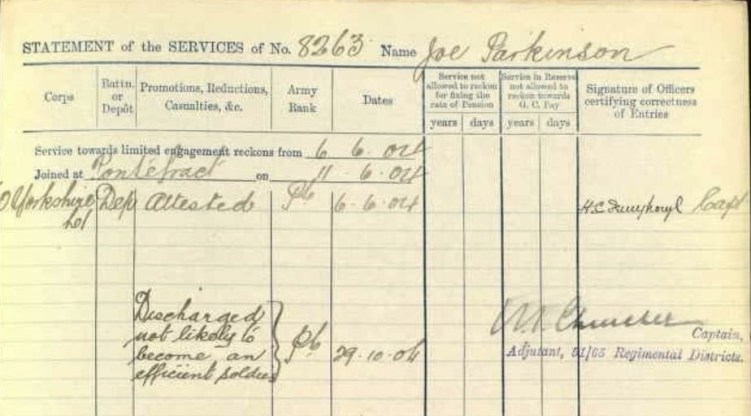 STATEMENT of the SERVICES of No. 8263 Name Joe Parkinson
Corps
Battn. or Depôt
Promotions, Reductions, Casualties, &c.
Army Rank
Dates
Service not allowed to reckon for fixing the rate of Pension
years days
Service in Reserve not allowed to reckon towards G. C. Pay
years days
Signature of Officers certifying correctness of Entries
Service towards limited engagement reckons from 6 6. 04
Joined at Pontefract on 11 . 6 . 04
Yorkshire Dep Attested Pte 6-6-04 H.C. Capt
LI
Discharged
not likely to
become an Pte 29-10-04
efficient soldier
Captain,
Adjutant, 51/65 Regimental Districts.